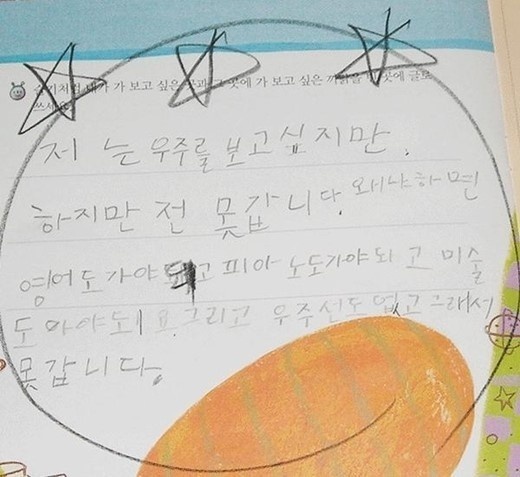 가 보고 싶은 곳과 그 곳에 가 보고 싶은 까닭을 곳에 글로
쓰세요.
저 는 우주를 보고싶 지만.
하지만 전 못갑니다. 왜냐하면
영어도가야돼고 피아노도가야 돠고 미술
도 아야되요.그리고 우주선도 업고 그래서
못갑니다.